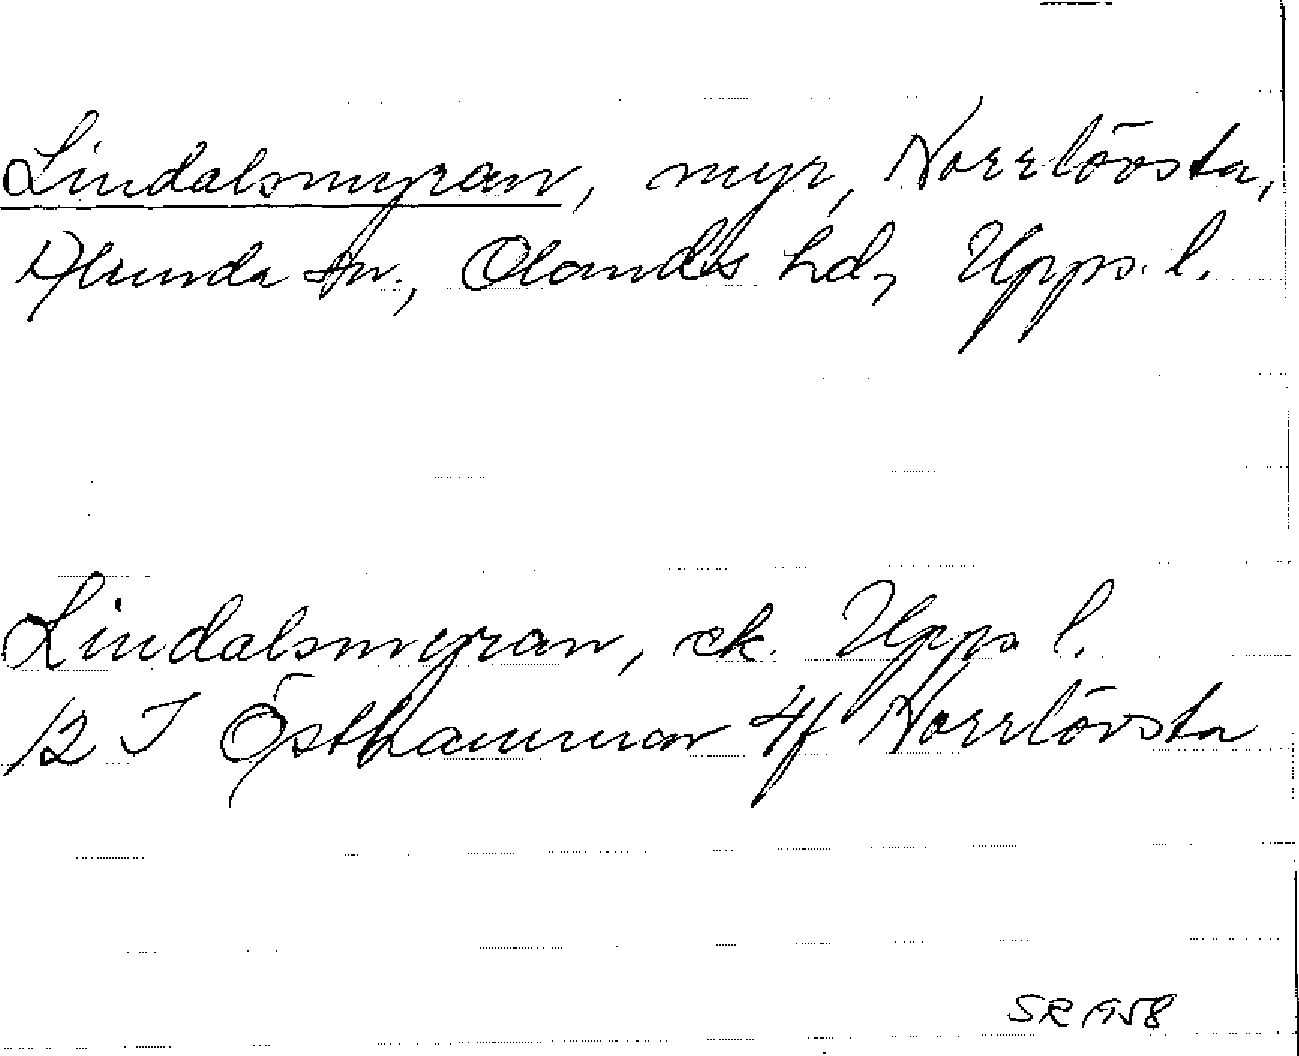 Lindalsmyran, myr, Norrlövsta,
Alunda sn., Olands hd, Upps. l.
Lindalsmyran, ek. Upps l.
12 I Östhammar 4f Norrlövsta
SR 1958